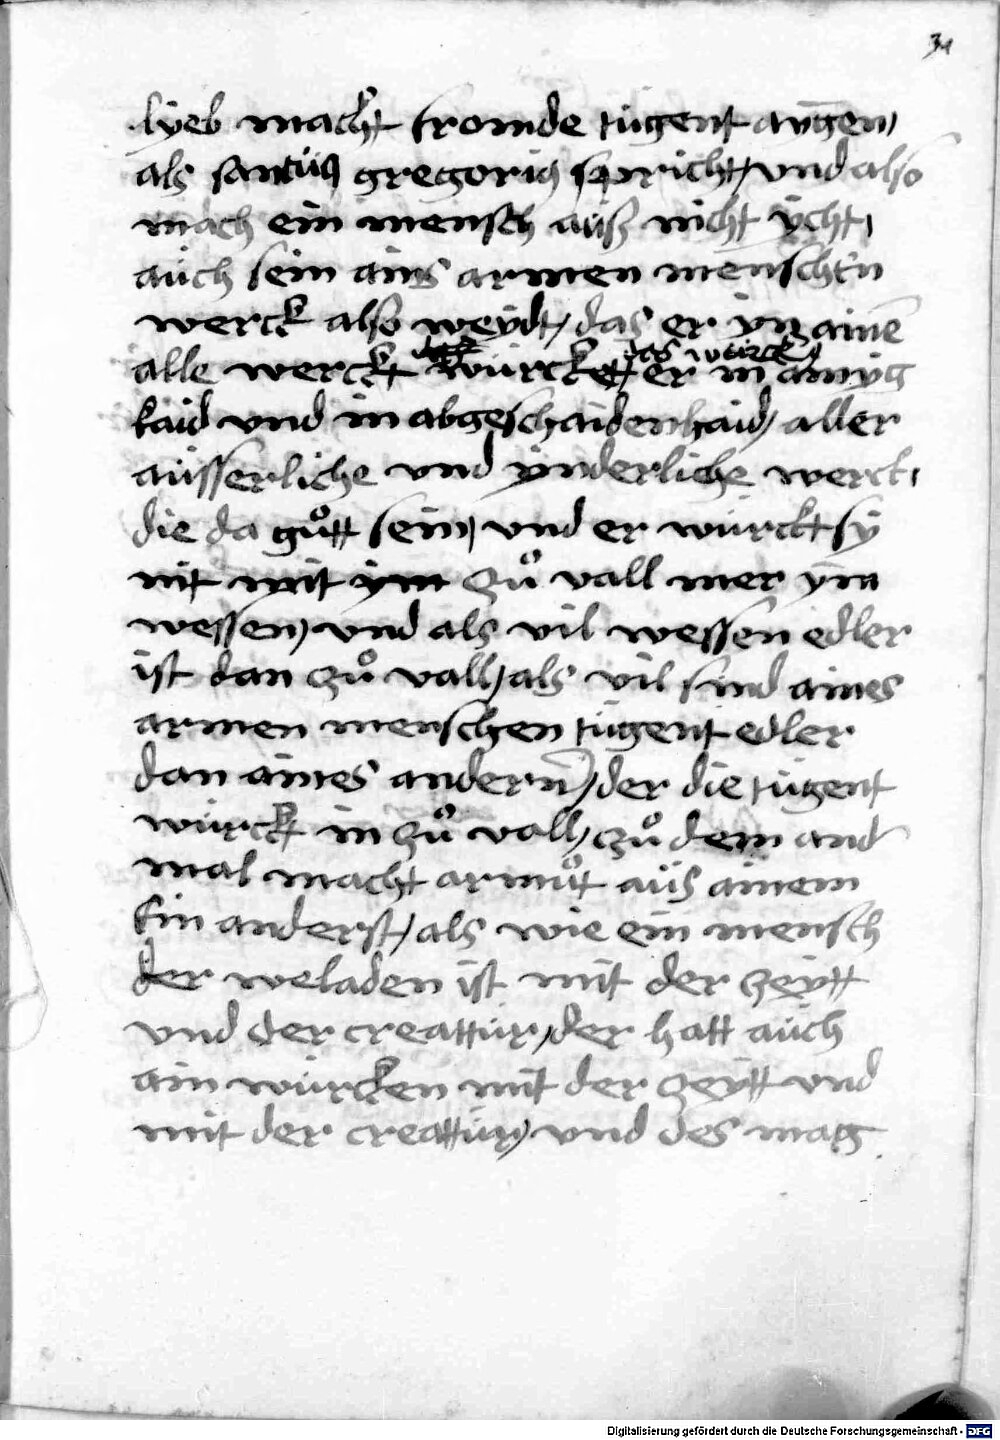 31
lyeb macht fromde tugent aygen /
als santus gregorius spricht / vnd also
mach ein mensch auß nicht ycht /
auch sein ains armen menschen
werck also weydt / das er yn aine
das würck
alle werck würcket / er in ainyg
kaid vnd in abgeschaidenhaid / aller
ausserliche vnd ynderliche werck /
die da gůtt sein / vnd er würckt sy
nit mit ym zů vall mer ym
wessen / vnd als vil wessen edler
ist dan zů vall / als vil sind aines
armen menschen tugent edler
dan aines andern / der die tugent
würckt in zů vall / zů dem and
mal macht armůt aus ainem
Ein anderst / als wie ein mensch
der weladen ist mit der zeytt
vnd der creattur / der hatt auch
ain würcken mit der zeytt vnd
mit der creattur / vnd des mag
Digitalisierung gefördert durch die Deutsche Forschungsgemeinschaft - DFG